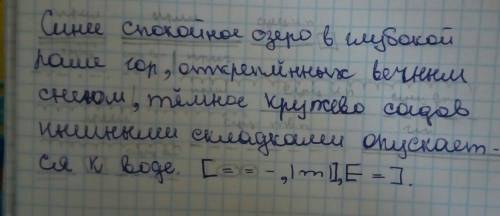 Синее спокойное озеро в глубокой
раме гор, откреплённых вечным
снегом, тёмное кружево садов
пышными складками опускает-
ся к воде. [= = -, |m|], [- =].